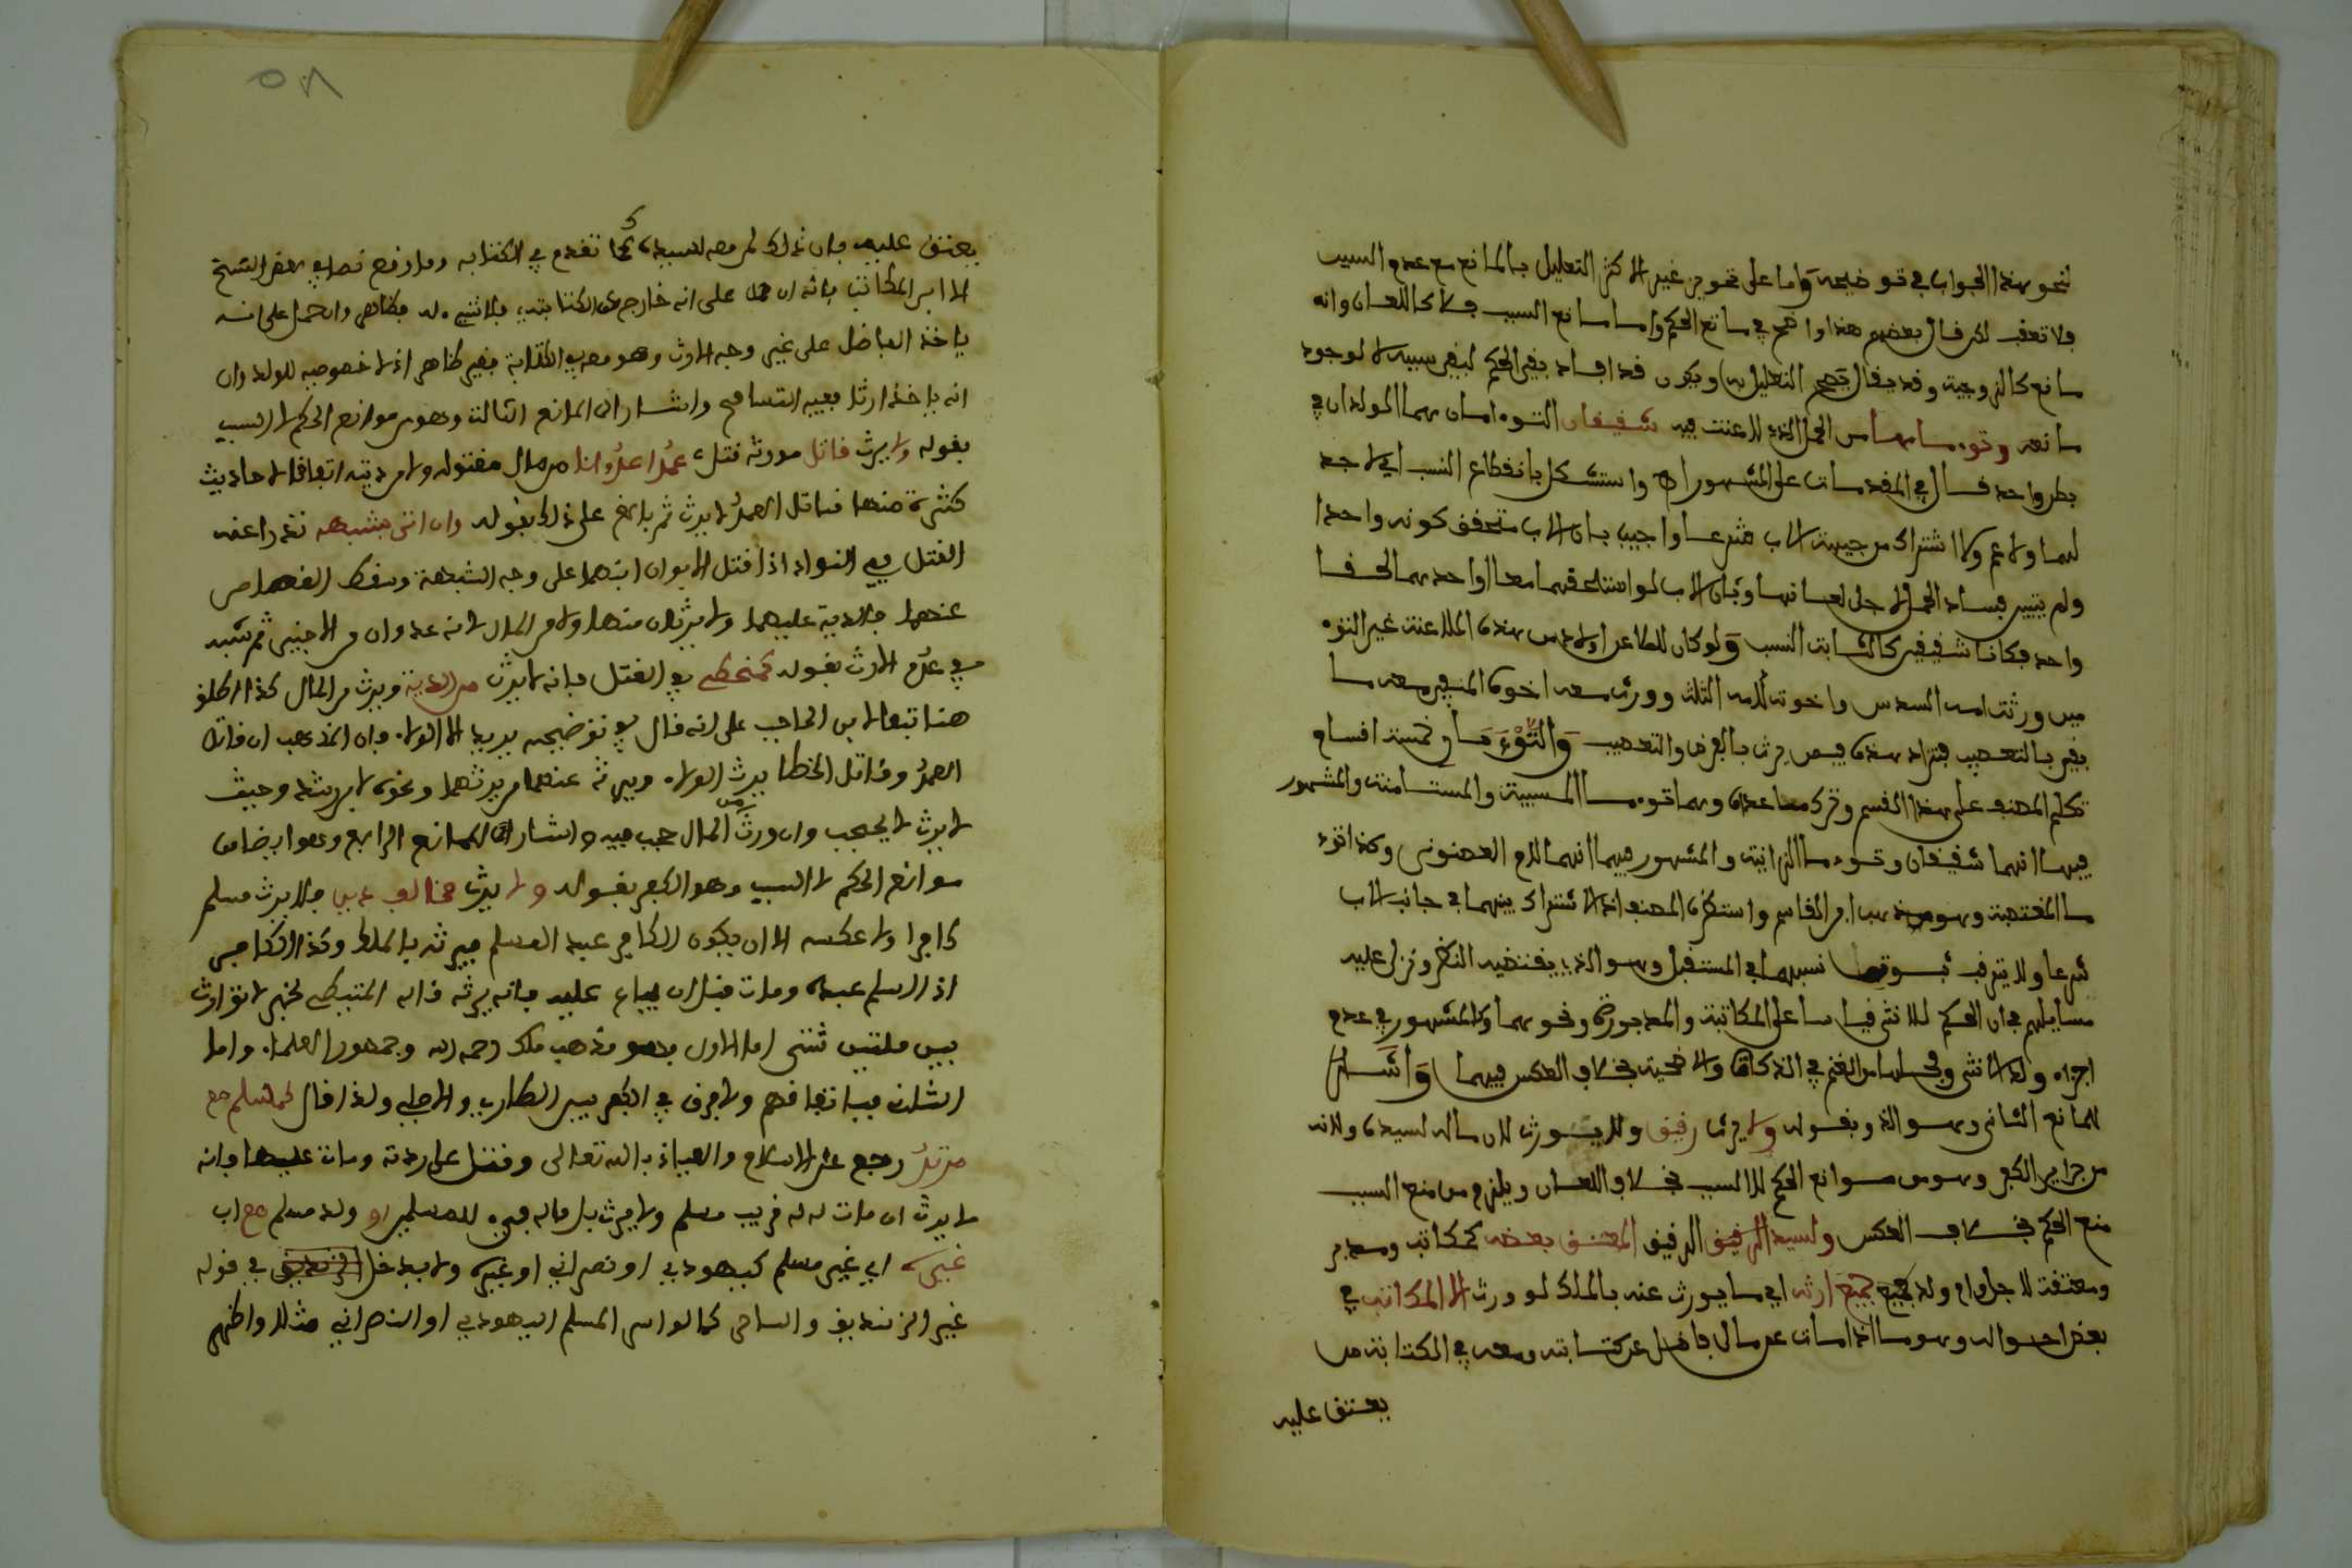 لنحو هذا الجواب في توضيحه واما على تجويز غير الاكثر التعليل بالمانع مع عدم السبب
فلا تعقب لكن قال بعضهم هذا واضح في مانع الحكم واما مانع السبب فلا كاللعان وانه
مانع كالزوجية وقد يقال يصح التعليل به ويكون قد افاد نفي الحكم لنفي سببه لا لوجود
مانعه وتوءماها من الحمل الذي لاعنت فيه شقيقان التوءمان هما المولدان في
بطن واحد قال في المقدمات على المشهور اه واستشكل بانقطاع النسب اي لا جد
لهما ولا عم ولا اشتراك من جهة الاب شرعا واجيب بان الاب متحقق كونه واحدا
ولم يتبين فساد الحمل لاجل لعانها وبان الاب لو استلحقهما معا او احدهما لحقا
واحد فكانا شقيقين كالثابت النسب ولو كان للملاعن اولاد من هذه الملاعنة غير التوء
مين ورثت امه السدس واخوته للام الثلث وورث معه اخوه المنفي معه ما
بقي بالتعصيب فتزاد هذه فيمن يرث بالفرض والتعصيب والتوءمان خمسة اقسام
تكلم المصنف على هذا القسم وترك ما عداه وهما توءما المسبية والمستامنة والمشهور
فيهما انهما شقيقان وتوءما الزانية والمشهور فيهما انهما للام المصنوني وكذا توء
ما المغتصبة وهو مذهب ابن القاسم واستظهره المصنف اذ لا اشتراك بينهما في جانب الاب
شرعا ولا يترقب ثبوت نسبهما في المستقبل وهو الذي يقتضيه النظر وتدل عليه
مسايلهم في ان الحكم للانثى قياسا على المكاتبة والمدبرة ونحوهما والمشهور في عدم
اجزاء ولد الانثى وفحلها من الغنم في الزكاة والاضحية بخلاف العكس فيهما واشار
للمانع الثاني وهو الرق بقوله ولا يرث رقيق ولا يورث لان ماله لسيده ولانه
من جزاير الكفر وهو من موانع الحكم لا السبب بخلاف اللعان ويلزم من منع السبب
منع الحكم بخلاف العكس ولسيد الرقيق الرقيق المعتق بعضه كمكاتب ومدبر
ومعتقة لاجل وام ولد جميع ارثه اي ما يورث عنه بالملك لو ورث الا المكاتب في
بعض احواله وهو ما اذا مات عن مال فاضل عن كتابته ومعه في الكتابة من
يعتق عليه
يعتق عليه فان ذلك لمن معه لا لسيده كما تقدم في الكتابة وما وقع نصا في بعض النسخ
الا ابن المكاتب فانه ان حمل على انه خارج عن الكتابة فلا شيء له فظاهر وان حمل على انه
ياخذ الفاضل على غير وجه الارث وهو معه في الكتابة فغير ظاهر اذ لا خصوصية للولد وان
انه ياخذ ارثا ففيه التسامح واشار الى المانع الثالث وهو من موانع الحكم لا السبب
بقوله ولا يرث قاتل مورثه قتلا عمدا عدوانا من مال مقتوله ولا من ديته اتفاقا لاحاديث
كثيرة منها قاتل العمد لا يرث ثم بالغ على ذلك بقوله وان اتى بشبهة تدرا عنه
القتل في النوادر اذا قتل الابوان ابنهما على وجه الشبهة وسقط القصاص
عنهما فالدية عليهما ولا يرثان منها ولا من المال لانه عدوان من الاجنبي ثم شبه
في عدم الارث بقوله كمخطئ في القتل فانه لا يرث من الدية ويرث من المال كذا اطلق
هنا تبعا لابن الحاجب على انه قال في توضيحه يريد الا الولاء فان المذهب ان قاتل
العمد وقاتل الخطا يرث الولاء ويرثه عنهما من يرثهما ونحوه لابن رشد وحيث
لا يرث لا يحجب وان ورث من المال حجب فيه واشار الى المانع الرابع وهو ايضا من
موانع الحكم لا السبب وهو الكفر بقوله ولا يرث مخالف دين فلا يرث مسلم
كافرا ولا عكسه الا ان يكون الكافر عبد المسلم فيرثه بالملك وكذا الكافر
اذا اسلم عبده ومات قبل ان يباع عليه فانه يرثه قاله المتيطي لخبر لا توارث
بين ملتين شتى اما الاول فهو مذهب ملك رحمه الله وجمهور العلماء واما
الثاني فباتفاقهم ولا فرق في الكفر بين الطاري والاصلي ولذا قال كمسلم مع
مرتد رجع عن الاسلام والعياذ بالله تعالى وقتل على ردته ومات عليها فانه
لا يرث ان مات له قريب مسلم ولا يورث بل ماله فيء للمسلمين او ولد مسلم مع اب
غيره اي غير مسلم كيهودي او نصراني او غيره ولا يدخل الزنديق في قوله
غير الزنديق والساحر كما لو اسر المسلم اليهودي او النصراني مثلا واظهر